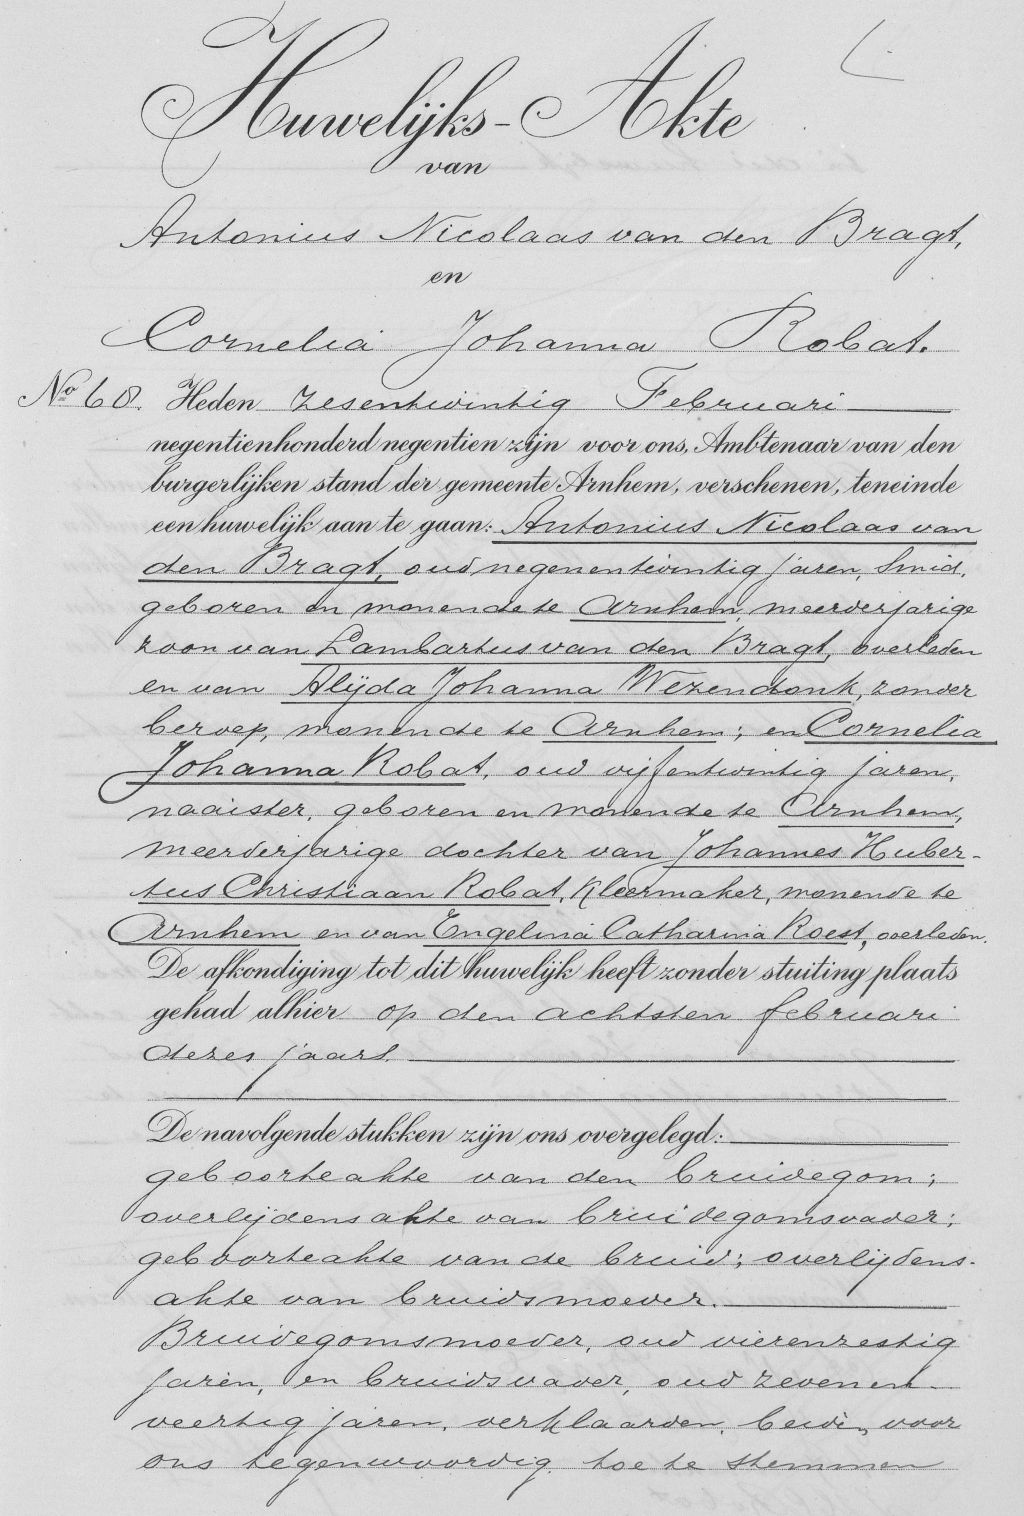 Huwelijks-Akte
van
Antonius Nicolaas van den Bragt,
en
Cornelia Johanna Robat.
No 68. Heden zesentwintig Februari
negentienhonderd negentien zijn voor ons, Ambtenaar van den
burgerlijken stand der gemeente Arnhem, verschenen, teneinde
een huwelijk aan te gaan: Antonius Nicolaas van
den Bragt, oud negenentwintig jaren, smid,
geboren en wonende te Arnhem, meerderjarige
zoon van Lambartus van den Bragt, overleden
en van Alijda Johanna Wezendonk, zonder
beroep, wonende te Arnhem; en Cornelia
Johanna Robat, oud vijfentwintig jaren,
naaister, geboren en wonende te Arnhem,
meerderjarige dochter van Johannes Huber-
tus Christiaan Robat, kleermaker, wonende te
Arnhem en van Engelina Catharina Roest, overleden.
De afkondiging tot dit huwelijk heeft zonder stuiting plaats
gehad alhier op den achtsten februari
dezes jaars.
De navolgende stukken zijn ons overgelegd:
geboorteakte van den bruidegom;
overlijdensakte van bruidegomsvader;
geboorteakte van de bruid; overlijdens-
akte van bruidsmoeder.
Bruidegomsmoeder, oud vierenzestig
jaren, en bruidsvader, oud zevenen-
veertig jaren, verklaarden, beide, voor
ons tegenwoordig toe te stemmen